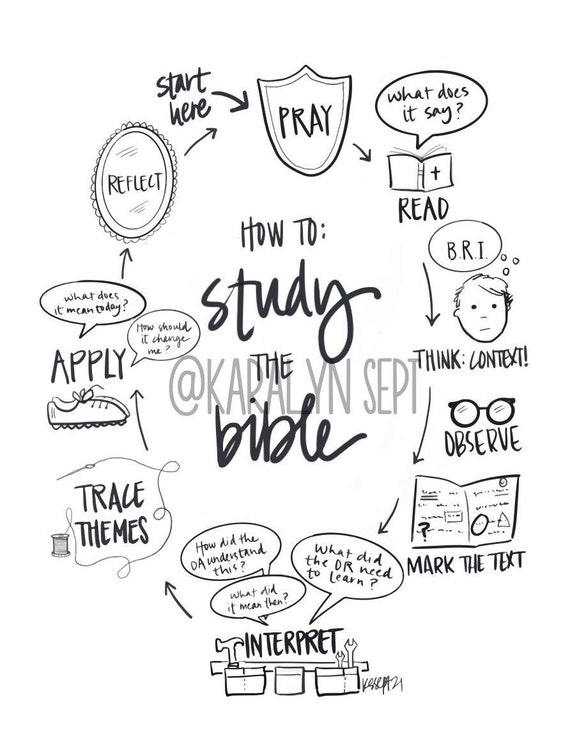 start
here
PRAY
What does
it say?
READ
B.R.I.
THINK: CONTEXT!
OBSERVE
?
MARK THE TEXT
What did
the OR need
to learn?
How did the
OA understand
this?
What did
it mean then?
INTERPRET
TRACE
THEMES
What does
it mean today?
How should
it change
me?
APPLY
REFLECT
HOW TO:
study
THE
@KARALYN SEPT
bible